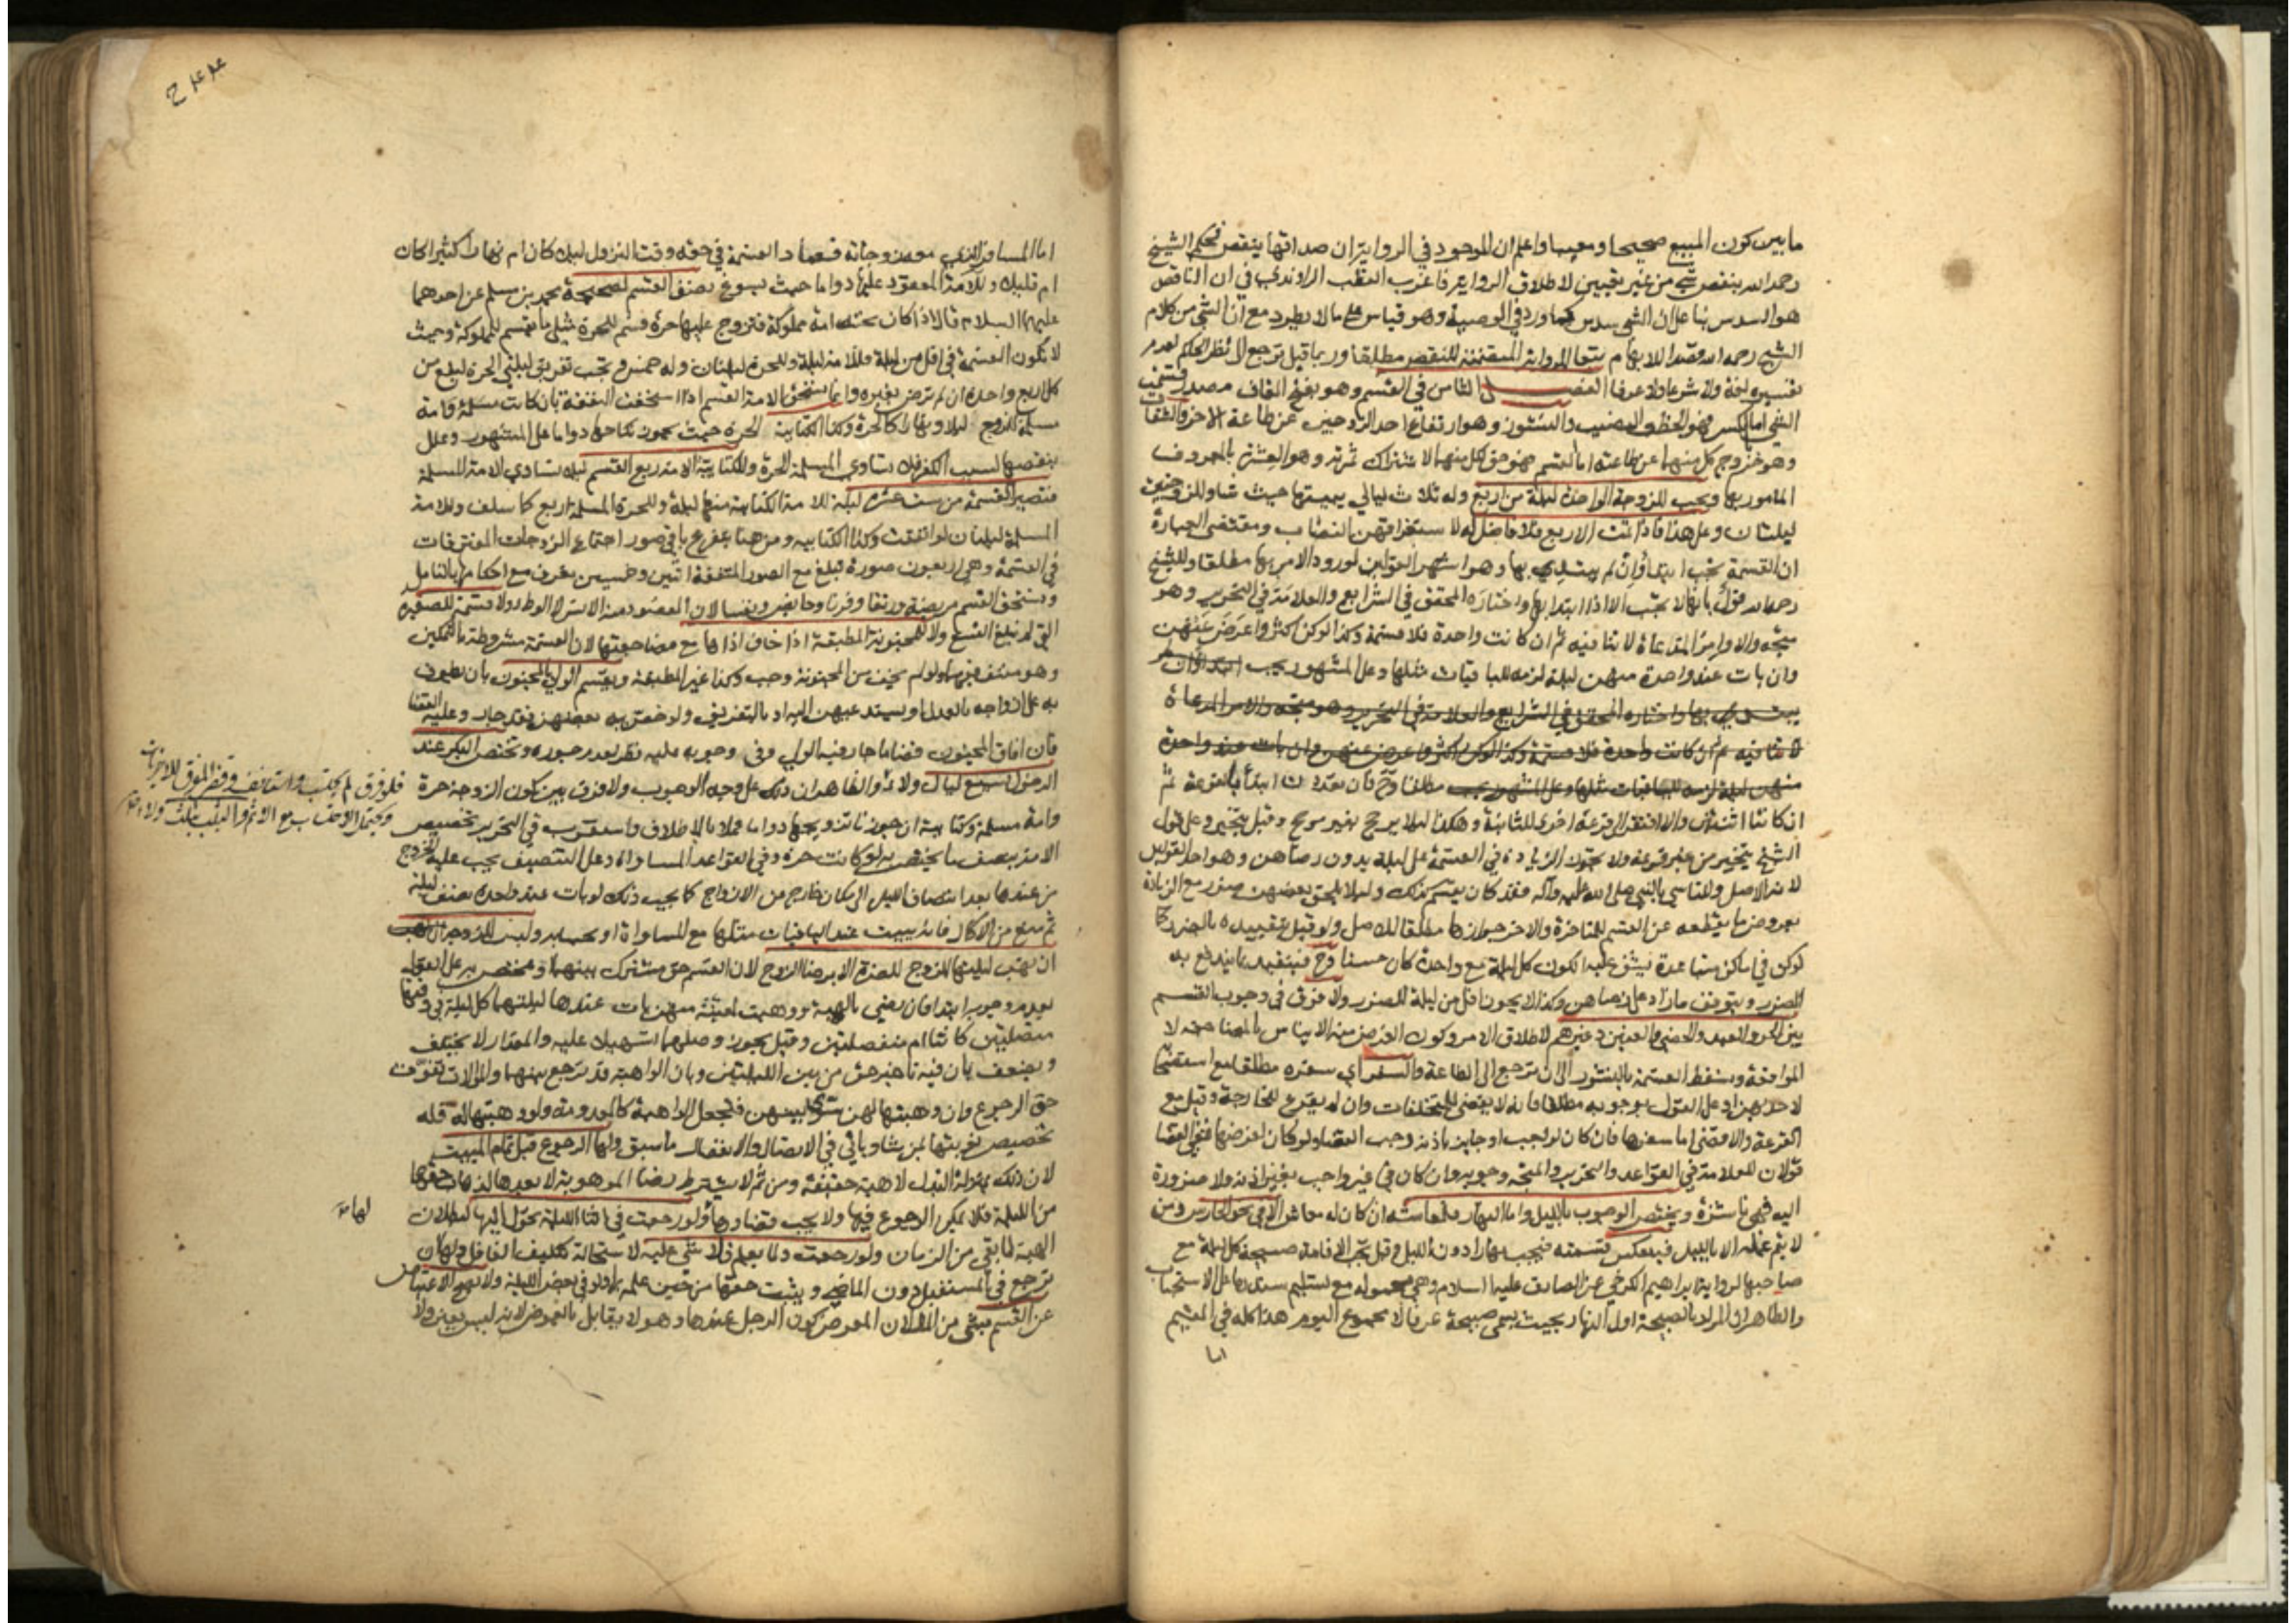 ما بين كون المبيع صحيحا ومعيبا واعلم ان الموجود في الرواية ان صداقها ينقص فحكم الشيخ
رحمه الله بنقص شئ من غير تعيين لاطلاق الرواية عرفا اغرب القطب الراوندي في ان الناقص
هو السدس بنا على ان الشئ سدس كما ورد في الوصية وهو قياس على ما لا يطرد مع ان الشئ من كلام
الشيخ رحمه الله قصدا للابهام تبعا للرواية المتضمنة للنقص مطلقا وربما قيل يرجع الى نظر الحاكم لعدم
تفسيره لغة ولا شرعا ولا عرفا الفصل الثامن في القسم وهو بفتح القاف مصدر قسمت
الشئ اما بالكسر فهو الحظ والنصيب والنشوز وهو ارتفاع احد الزوجين عن طاعة الاخر والشقاق
وهو خروج كل منهما عن طاعته اما القسم فهو حق لكل منهما لاشتراك ثمرته وهو العشرة بالمعروف
المامور بها ويجب للزوجة الواحدة ليلة من اربع وله ثلاث ليالي يبيتها حيث شاء وللزوجتين
ليلتان وعلى هذا فاذا تمت الاربع فلا فاضل له لاستغراقهن النصاب ومقتضى العبارة
ان القسمة تجب ابتداء وان لم يبتدي بها وهو اشهر القولين لورود الامر بها مطلقا وللشيخ
رحمه الله قول بانها لا تجب الا اذا ابتدا بها واختاره المحقق في الشرايع والعلامة في التحرير وهو
متجه والاوامر المدعاة لا تنافيه ثم ان كانت واحدة فلا قسمة وكذا لو كن اكثر واعرض عنهن
وان بات عند واحدة منهن ليلة لزمه للباقيات مثلها وعلى المشهور يجب ابتداء وان لم
يبتدي بها واختاره المحقق في الشرايع والعلامة في التحرير وهو متجه والاوامر المدعاة
لا تنافيه ثم ان كانت واحدة فلا قسمة وكذا لو كن اكثر واعرض عنهن وان بات عند واحدة
منهن ليلة لزمه للباقيات مثلها وعلى المشهور يجب مطلقا وح فان تعددت ابتدأ بالقرعة ثم
ان كانتا اثنتين والا افتقر الى قرعة اخرى للثانية وهكذا ليلا يرجح بغير مرجح وقيل يتخير وعلى قول
الشيخ يتخير من غير قرعة ولا تجوز الزيادة في القسمة على ليلة بدون رضاهن وهو احد القولين
لانه الاصل وللتاسي بالنبي صلى الله عليه وآله فقد كان يقسم كذلك وليلا يلحق بعضهن ضرر مع الزيادة
بعروض ما يقطعه عن القسم للمتاخرة والاخر جوازها مطلقا للاصل ولو قيل بتقييده بالضرر كما
لو كن في اماكن متباعدة يشق عليه الكون كل ليلة مع واحدة كان حسنا وح فيتقيد بما يندفع به
الضرر ويتوقف ما زاد على رضاهن وكذا لا يجوز اقل من ليلة للضرر ولا فرق في وجوب القسم
بين الحر والعبد والخصي والعنين وغيرهم لاطلاق الامر وكون الغرض منه الايناس بالمضاجعة لا
المواقعة ويسقط القسمة بالنشوز الى ان ترجع الى الطاعة والسفر اي سفره مطلقا مع استصحابه
لاحدهن او على القول بوجوبه مطلقا فانه لا يقضي للمتخلفات وان لم يقرع للخارجة وقيل مع
القرعة والا قضى اما سفرها فان كان لواجب او جايز باذنه وجب القضاء ولو كان لغرضها ففي القضا
قولان للعلامة في القواعد والتحرير والمتجه وجوبه وان كان في غير واجب بغير اذنه ولا ضرورة
اليه فهي ناشزة ويختص الوجوب بالليل واما النهار فلمعاشه ان كان له معاش الا في نحو الحارس ومن
لا يتم عمله الا بالليل فينعكس قسمته فتجب نهارا دون الليل وقيل تجب الاقامة صبيحة كل ليلة مع
صاحبها لرواية ابراهيم الكرخي عن الصادق عليه السلام وهي محمولة مع تسليم سندها على الاستحباب
والظاهر ان المراد بالصبيحة اول النهار بحيث يسمى صبيحة عرفا لا مجموع اليوم هذا كله في المقيم
اما
اما المسافر الذي معه زوجاته فعماد القسمة في حقه وقت النزول ليلا كان ام نهارا كثيرا كان
ام قليلا وللامة المعقود عليها دواما حيث يسوغ نصف القسم لصحيحة محمد بن مسلم عن احدهما
عليهما السلام قال اذا كان تحته امة مملوكة فتزوج عليها حرة قسم للحرة مثلي ما يقسم للمملوكة وحيث
لا تكون القسمة في اقل من ليلة فللامة ليلة وللحرة ليلتان وله خمس ويجب تفريق ليلتي الحرة ليقع من
كل اربع واحدة ان لم ترض بغيره وانما تستحق الامة القسم اذا استحقت النفقة بان كانت مسلمة وامة
مسلمة للزوج ليلا ونهارا كالحرة وكذا الكتابية الحرة حيث يجوز نكاحها دواما على المشهور وعلل
بنقصها بسبب الكفر فلا تساوي المسلمة الحرة وللكتابية الامة ربع القسم ليلا تساوي الامة المسلمة
فتصير القسمة من ست عشرة ليلة للامة الكتابية منها ليلة وللحرة المسلمة اربع كما سلف وللامة
المسلمة ليلتان لو اتفقت وكذا الكتابية ومن هنا يتفرع باقي صور اجتماع الزوجات المتفرقات
في القسمة وهي اربعون صورة تبلغ مع الصور المتفقة اثنين وخمسين تعرف مع احكامها بالتامل
ويستحق القسم مريضة ورتقا وقرنا وحايض ونفسا لان المقصود منه الانس لا الوطء ولا قسمة للصغيرة
التي لم تبلغ التسع ولا للمجنونة المطبقة اذا خاف اذاها مع مضاجعتها لان القسمة مشروطة بالتمكين
وهو منتف فيهما ولو لم يخف من المجنونة وجب وكذا غير المطبقة ويقسم الولي بالمجنون بان يطوف
به على ازواجه بالعدل او يستدعيهن اليه او بالتفريق ولو خص به بعضهن فقد جار وعليه القضا
فان افاق المجنون قضى ما جار فيه الولي وفي وجوبه عليه نظر لعدم جوره وتختص البكر عند
الدخول بسبع ليال ولاء والظاهر ان ذلك على وجه الوجوب ولا فرق بين كون الزوجة حرة
وامة مسلمة وكتابية ان جوزنا تزويجها دواما عملا بالاطلاق واستقرب في التحرير تخصيص
الامة بنصف ما يختص به لو كانت حرة وفي القواعد المساواة وعلى التنصيف يجب عليه الخروج
من عندها بعد انتصاف الليل الى مكان خارج عن الازواج كما يجب ذلك لو بات عند واحدة نصف ليلة
ثم منع من الاكمال فانه يبيت عند الباقيات مثلها مع المساواة او بحسابه وليس للزوجة ان تهب
ان تهب ليلتها للزوج للضرة الا برضا الزوج لان القسم حق مشترك بينهما ومختص به على القول
بعدم وجوبه ابتداء فان رضي بالهبة ووهبت لمعينة منهن بات عندها ليلتهما كل ليلة في وقتها
متصلتين كانتا ام منفصلتين وقيل يجوز وصلهما تسهيلا عليه والمقدار لا يختلف
ويضعف بان فيه تاخير حق من بين الليلتين وبان الواهبة قد ترجع بينهما والموالات تفوت
حق الرجوع وان وهبتها لهن سوى بينهن فيجعل الواهبة كالمعدومة ولو وهبتها له فله
تخصيص نوبتها بمن يشاء وياتي في الاتصال والانفصال ما سبق ولها الرجوع قبل تمام المبيت
لان ذلك بمنزلة البذل لا هبة حقيقة ومن ثم لا يشترط رضا الموهوبة لا بعده لذهاب حقها
من الليلة فلا يمكن الرجوع فيها ولا يجب قضاؤها لها ولو رجعت في اثنا الليلة تحول اليها لبطلان
الهبة لما بقي من الزمان ولو رجعت ولما يعلم فلا شئ عليه لاستحالة تكليف الغافل ولها ان
ترجع في المستقبل دون الماضي ويثبت حقها من حين علمه به ولو في بعض الليلة ولا يصح الاعتياض
عن القسم بشئ من المال لان المعوض كون الرجل عندها وهو لا يقابل بالعوض لانه ليس بعين ولا
فلو فرق لم يحتسب واستانف وقضى المفرق للاخريات
ويحتمل الاحتساب مع الاثم والثيب بثلث ولاء